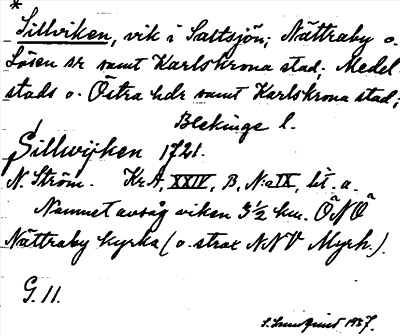 *
Sillviken, vik i Saltsjön; Nättraby o.
Lösen sr samt Karlskrona stad; Medel-
stads o. Östra hdr samt Karlskrona stad;
Blekinge l.
Sillwijken 1721.
N. Ström. KrA, XXIV, B, N:o IX, lit. a.
Namnet avsåg viken 3½ km. ÖNÖ
Nättraby kyrka (o. strax NNV Myrh.).
G. 11.
1937.